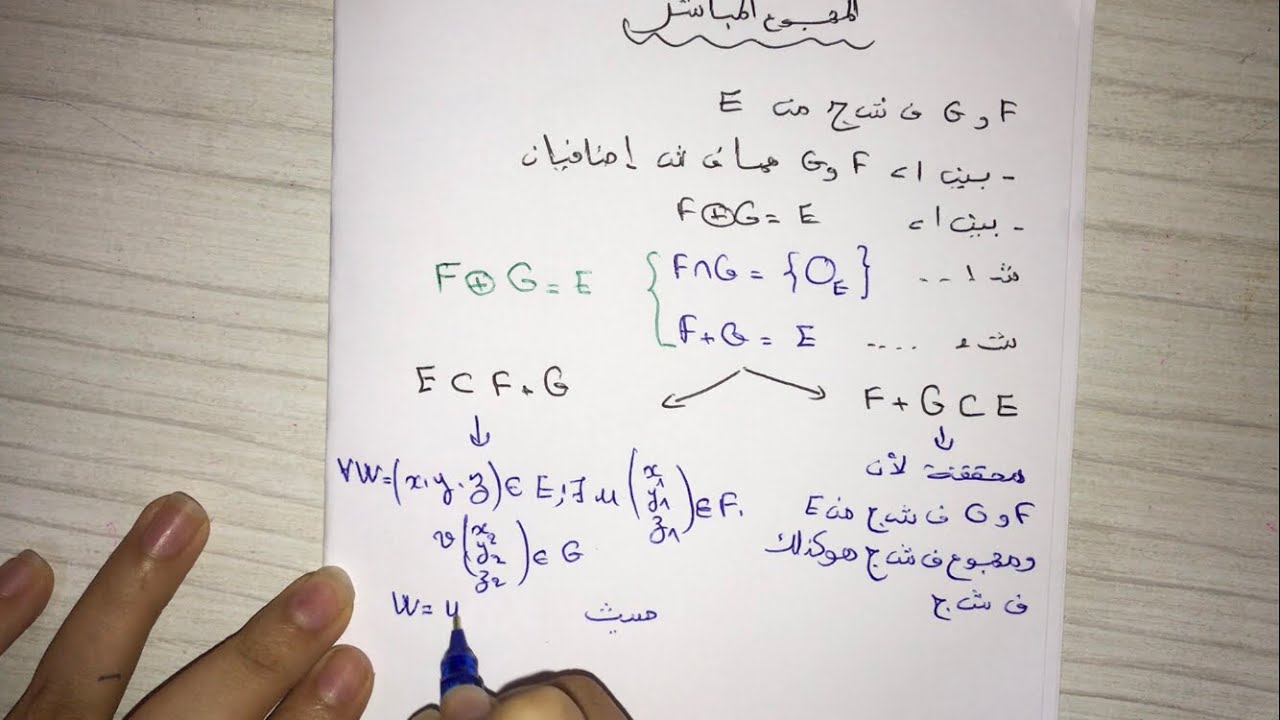 المجموع المباشر
F و G ف ش ج من E
- بين أن F و G هما ف ش إضافيان
- بين أن F⊕G = E
ش 1 ... F∩G = {O_E} F⊕G = E
ش 2 .... F+G = E
F+G ⊂ E
↓
محققة لأن
F و G ف ش ج من E
ومجموع ف ش ج هو كذلك
ف ش ج
E ⊂ F+G
↓
∀W=(x,y,z) ∈ E; ∃ u (x₁ y₁ z₁) ∈ F,
v (x₂ y₂ z₂) ∈ G
حيث W = u